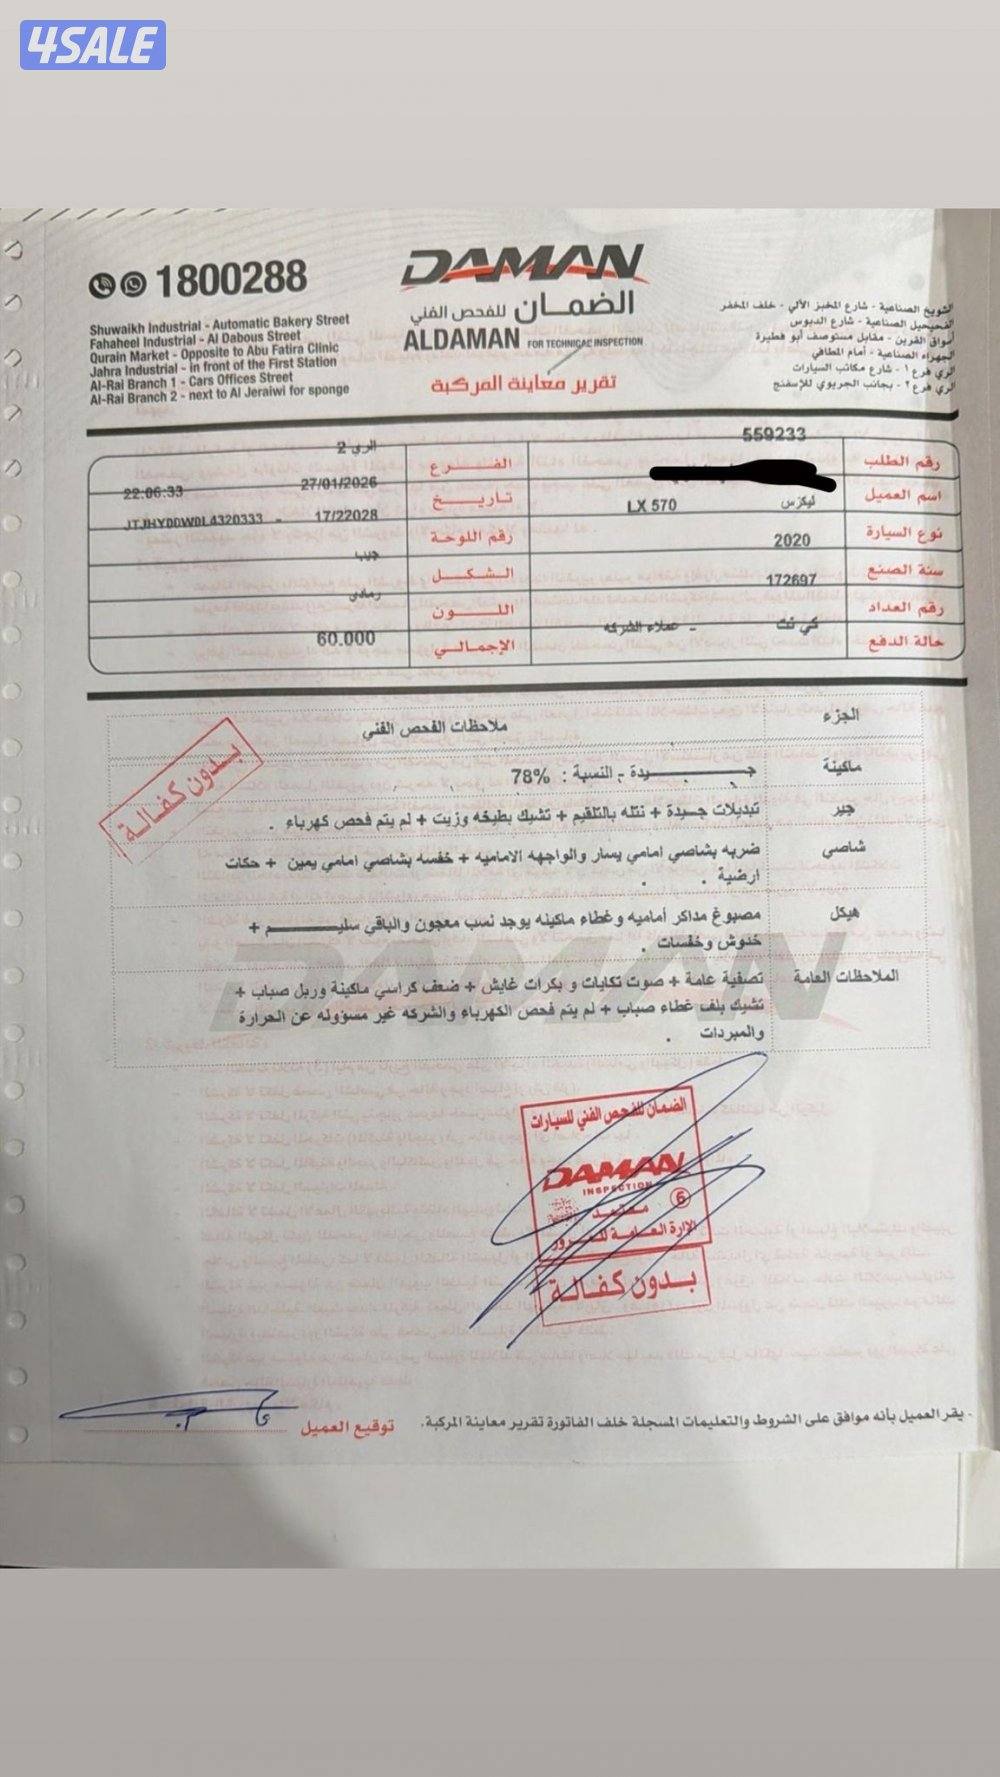 4SALE
1800288
Shuwaikh Industrial - Automatic Bakery Street
Fahaheel Industrial - Al Dabous Street
Qurain Market - Opposite to Abu Fatira Clinic
Jahra Industrial - in front of the First Station
Al-Rai Branch 1 - Cars Offices Street
Al-Rai Branch 2 - next to Al Jeraiwi for sponge
DAMAN
الضمان للفحص الفني
ALDAMAN FOR TECHNICAL INSPECTION
تقرير معاينة المركبة
الشويخ الصناعية - شارع المخبز الآلي - خلف المخفر
الفحيحيل الصناعية - شارع الدبوس
أسواق القرين - مقابل مستوصف أبو فطيرة
الجهراء الصناعية - أمام المطافي
الري فرع ١ - شارع مكاتب السيارات
الري فرع ٢ - بجانب الجريوي للإسفنج
رقم الطلب 559233 الفرع الري 2
اسم العميل تاريخ 27/01/2026 22:06:33
نوع السيارة ليكزس LX 570 رقم اللوحة 17/22028 - JTJHY00WDL4320333
سنة الصنع 2020 الشكل جيب
رقم العداد 172697 اللون رمادي
حالة الدفع كي نت - عملاء الشركه الإجمالي 60.000
الجزء ملاحظات الفحص الفني
ماكينة جـــــيدة - النسبة : 78%
جير تبديلات جيدة + نتله بالتلقيم + تشيك بطيخه وزيت + لم يتم فحص كهرباء .
شاصي ضربه بشاصي امامي يسار والواجهه الاماميه + خفسه بشاصي امامي يمين + حكات
ارضية .
هيكل مصبوغ مداكر أماميه وغطاء ماكينه يوجد نسب معجون والباقي سليـــــم +
خدوش وخفسات .
الملاحظات العامة تصفية عامة + صوت تكايات و بكرات غايش + ضعف كراسي ماكينة وربل صباب +
تشيك بلف غطاء صباب + لم يتم فحص الكهرباء والشركه غير مسؤوله عن الحرارة
والمبردات .
بدون كفالة
الضمان للفحص الفني للسيارات
DAMAN
INSPECTION
6
معتمد
الإدارة العامة للمرور
بدون كفالة
- يقر العميل بأنه موافق على الشروط والتعليمات المسجلة خلف الفاتورة تقرير معاينة المركبة.
توقيع العميل